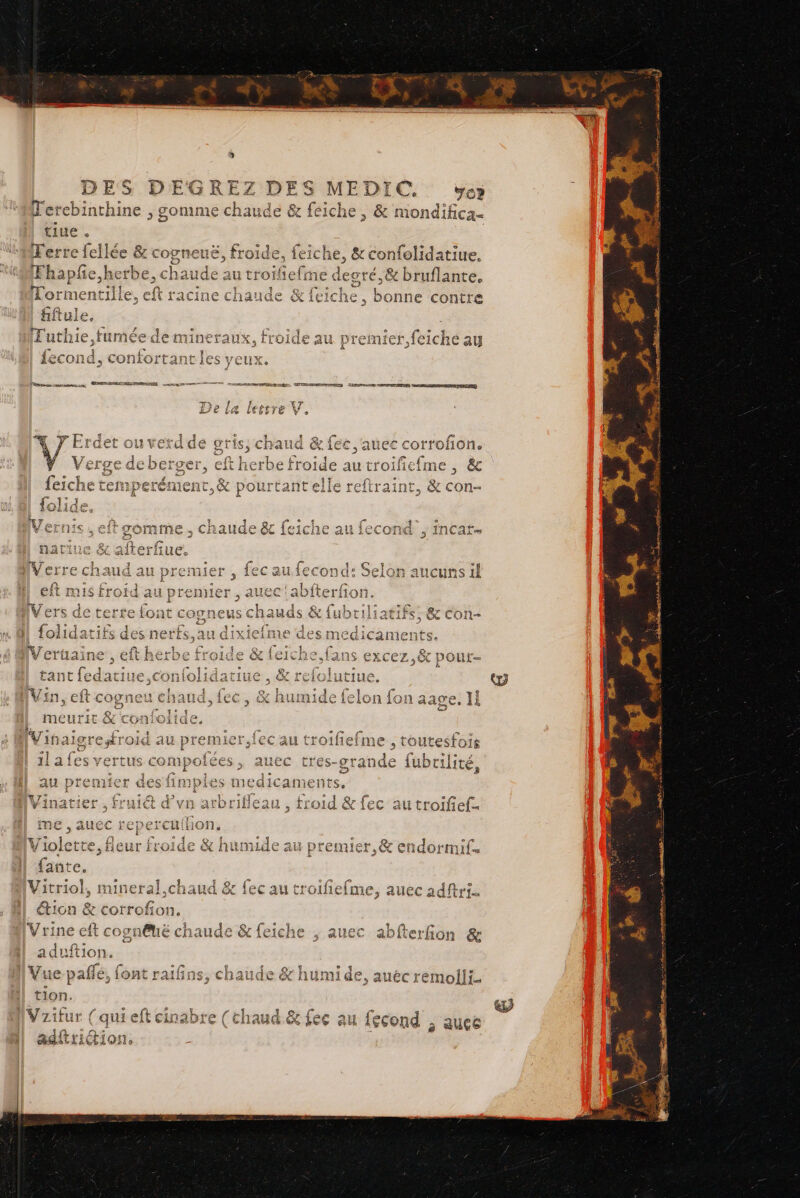 DES DEGREZ DES MEDIC.
Terebinthine , gomme chaude & ſeiche , & mondifica-
tiue .
Terre ſellée & cogneuë, froide, ſeiche, & conſolidatiue.
Thapſie,herbe, chaude au troiſieſme degré,& bruſlante.
Tormentille, eſt racine chaude & ſeiche, bonne contre
fiſtule.
Tuthie,fumée de mineraux, froide au premier,ſeiche au
ſecond, confortant les yeux.
De la lettre V.
VErdet ou verd de gris, chaud & ſec, auec corroſion.
Verge de berger, eſt herbe froide au troiſieſme , &
ſeiche temperément,& pourtant elle reſtraint, & con-
ſolide.
Vernis , eſt gomme , chaude & ſeiche au ſecond , incar-
natiue & aſterſiue.
Verre chaud au premier , ſec au ſecond: Selon aucuns il
eſt mis froid au premier , auec abſterſion.
Vers de terre ſont cogneus chauds & ſubtiliatifs, & con-
ſolidatifs des nerfs,au dixieſme des medicaments.
Veruaine , eſt herbe froide & ſeiche,ſans excez,& pour-
tant ſedatiue,conſolidatiue , & reſolutiue.
Vin, eſt cogneu chaud, ſec , & humide ſelon ſon aage. Il
meurit & conſolide.
Vinaigre,froid au premier,ſec au troiſieſme , toutesfois
il a ſes vertus compoſées , auec tres-grande ſubtilité,
au premier des ſimples medicaments.
Vinatier , fruict d'vn arbriſſeau , froid & ſec au troiſieſ-
me , auec repercuſſion.
Violette, fleur froide & humide au premier,& endormiſ-
ſante.
Vitriol, mineral,chaud & ſec au troiſieſme, auec adſtri-
ction & corroſion.
Vrine eſt cogneuë chaude & ſeiche , auec abſterſion &
aduſtion.
Vue paſſe, ſont raiſins, chaude & humide, auec remolli-
tion.
Vzifur (qui eſt cinabre (chaud & ſec au ſecond , auec
adſtriction.